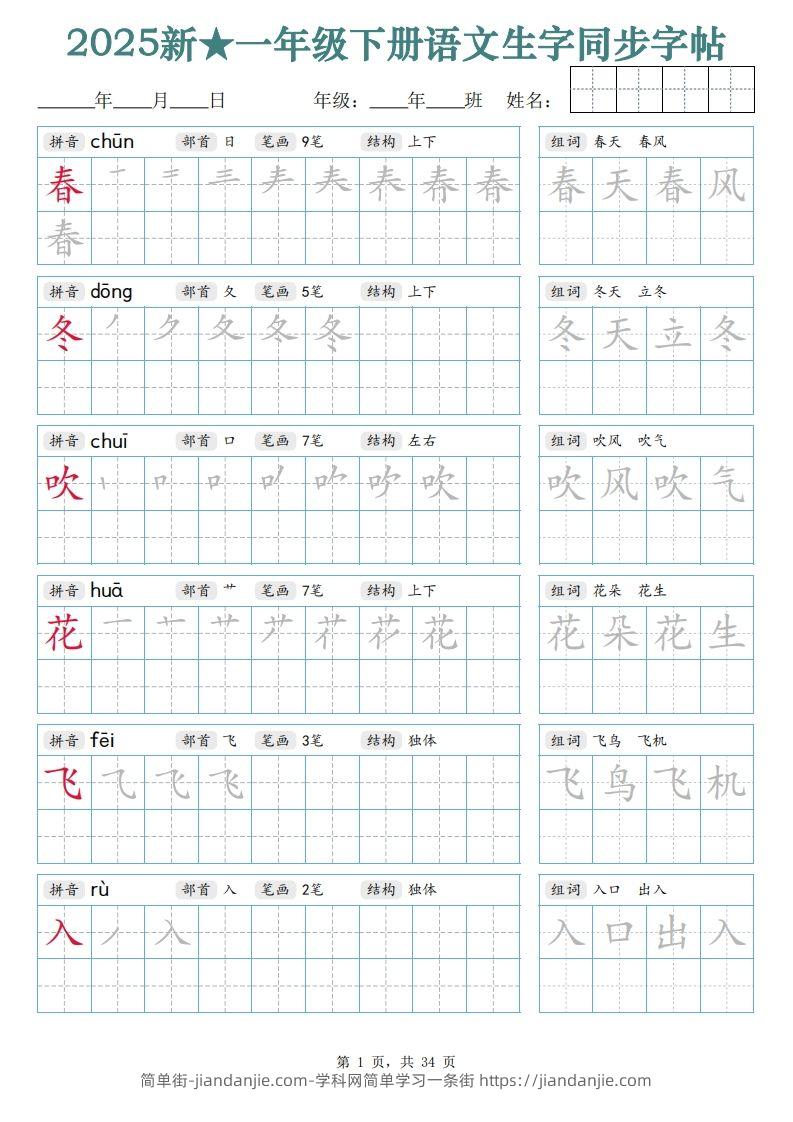 2025新★一年级下册语文生字同步字帖
______年____月____日 年级：____年____班 姓名：
拼音 chūn 部首 日 笔画 9笔 结构 上下 组词 春天 春风
春 一 二 三 𡗗 春 春 春 春 春天春风
春
拼音 dōng 部首 夂 笔画 5笔 结构 上下 组词 冬天 立冬
冬 丿 ク 夂 冬 冬 冬天立冬
拼音 chuī 部首 口 笔画 7笔 结构 左右 组词 吹风 吹气
吹 丨 口 口 吹 吹 吹 吹 吹风吹气
拼音 huā 部首 艹 笔画 7笔 结构 上下 组词 花朵 花生
花 一 十 艹 艹 花 花 花 花朵花生
拼音 fēi 部首 飞 笔画 3笔 结构 独体 组词 飞鸟 飞机
飞 乁 飞 飞 飞鸟飞机
拼音 rù 部首 入 笔画 2笔 结构 独体 组词 入口 出入
入 丿 入 入口出入
第 1 页，共 34 页
简单街-jiandanjie.com-学科网简单学习一条街 https://jiandanjie.com